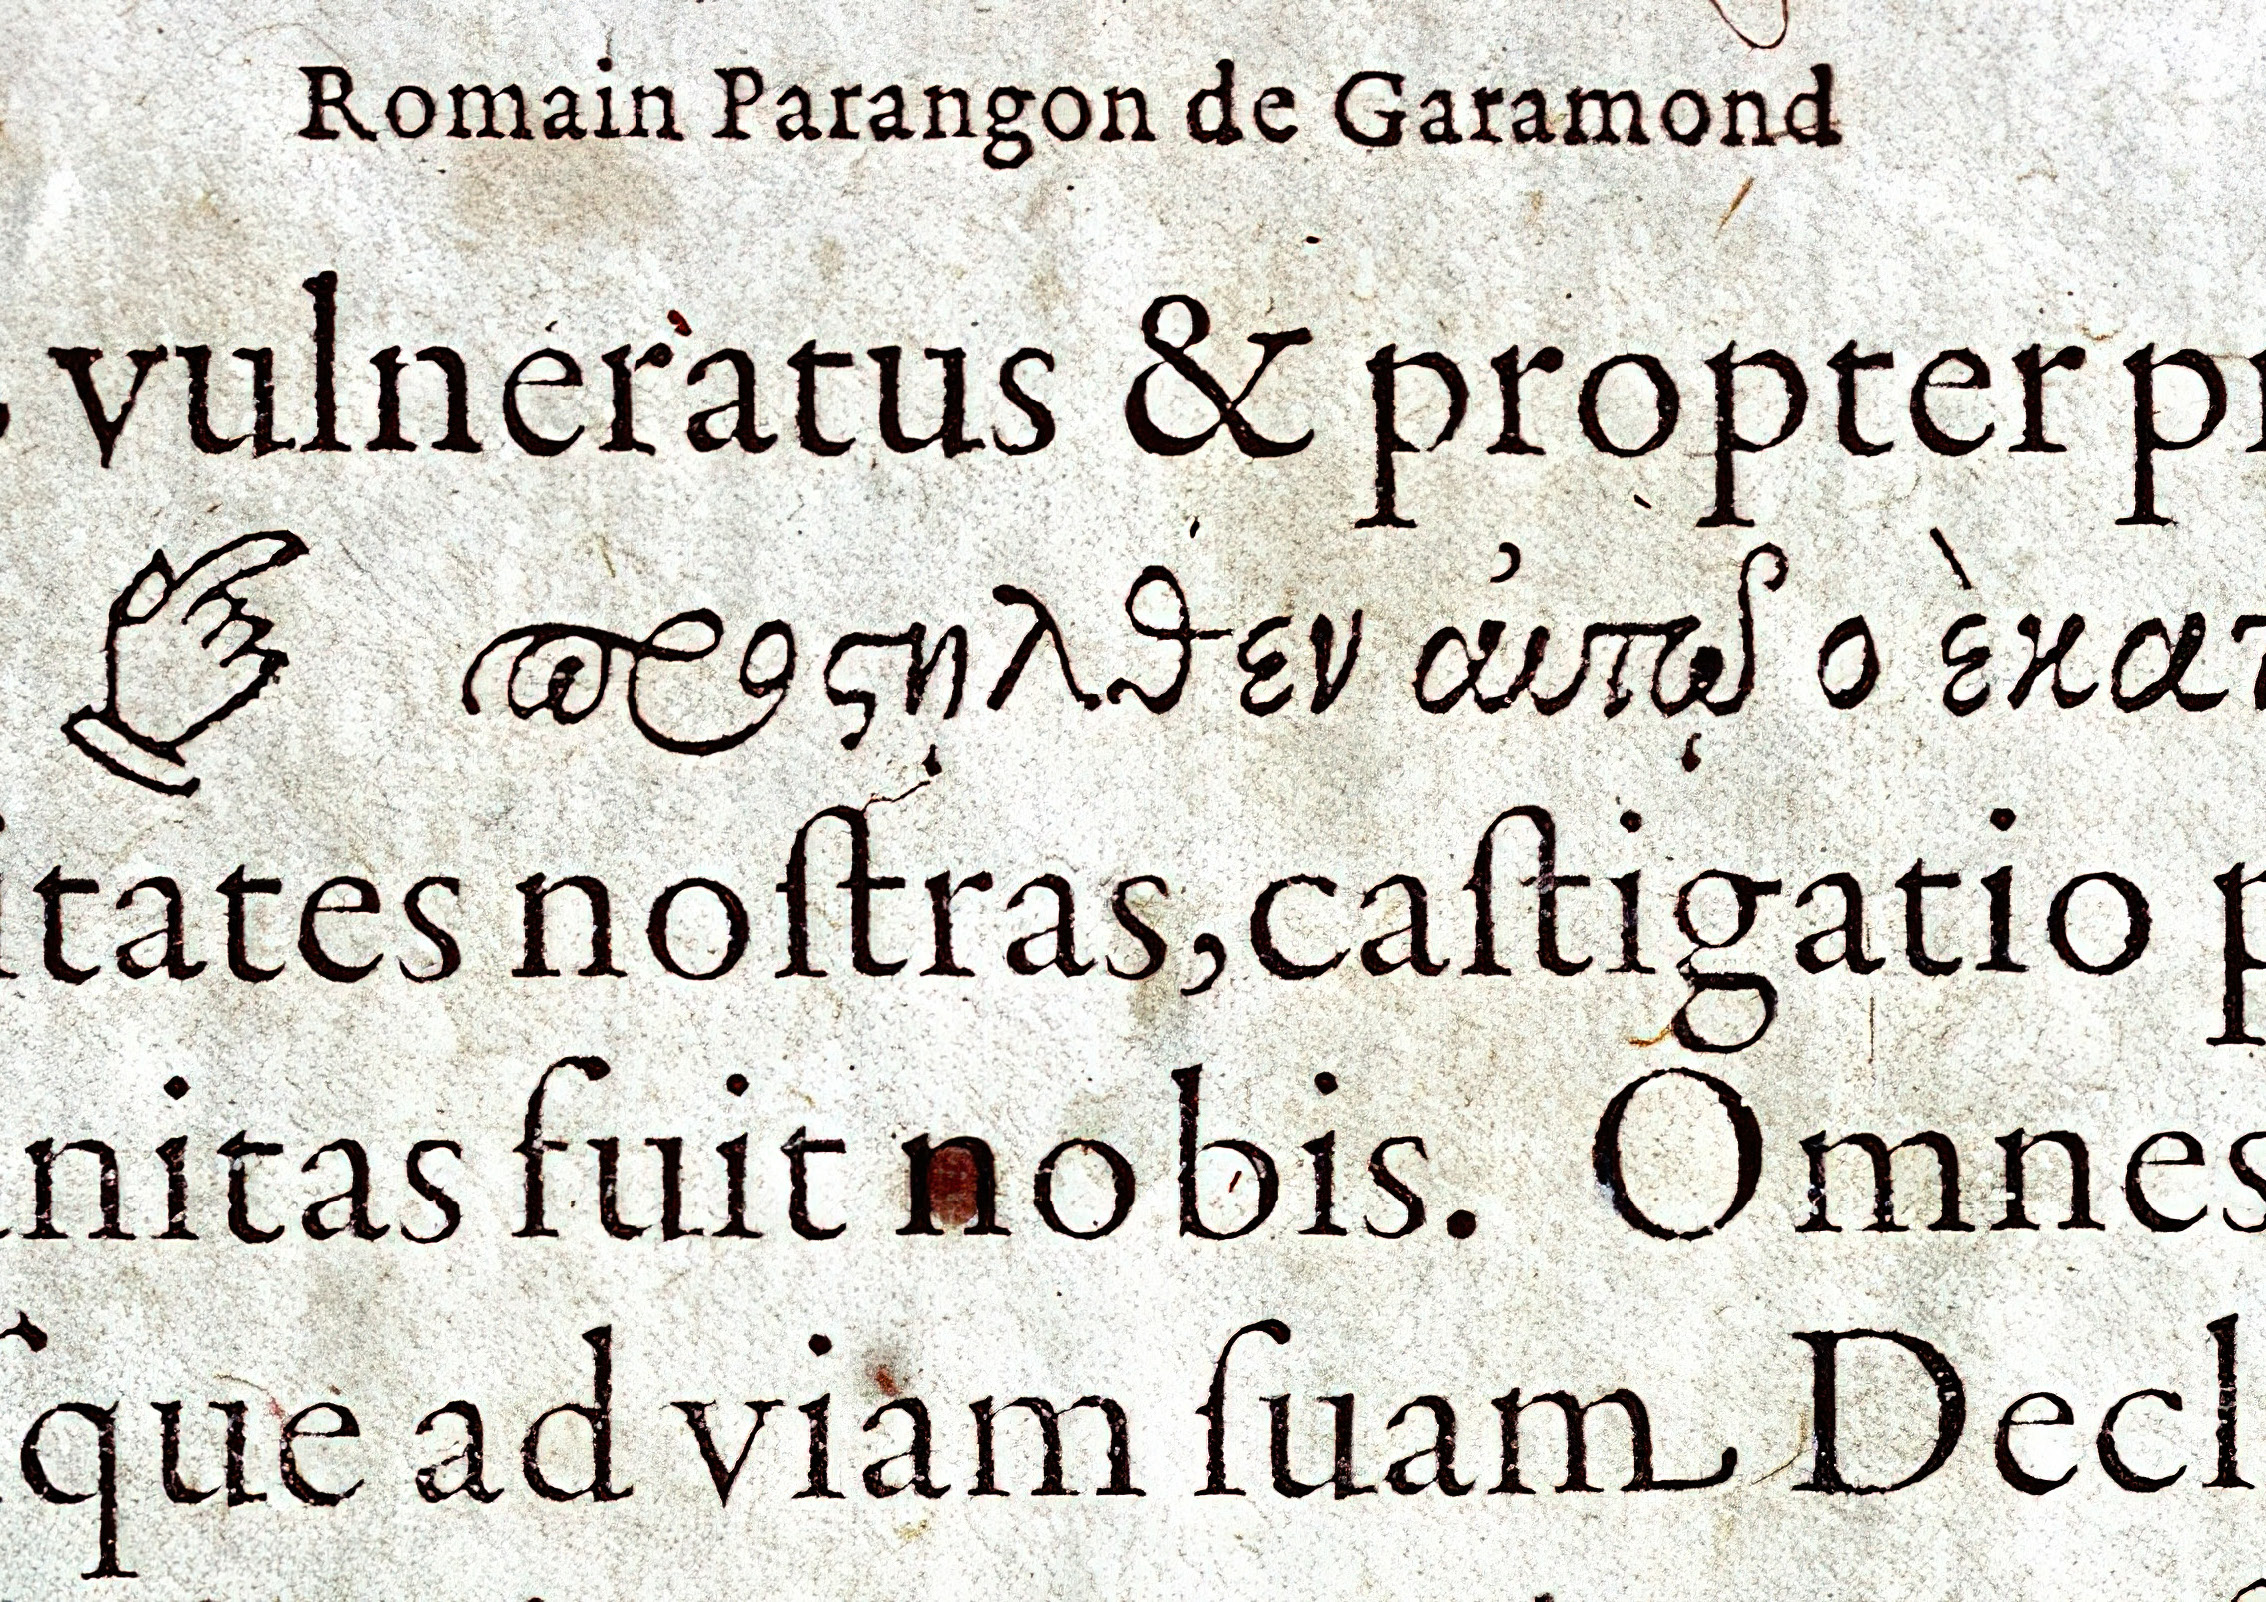 Romain Parangon de Garamond
vulneratus & propter
☞ προςῆλθεν ἀυτῷ ὁ ἑκατ
itates noſtras, caſtigatio p
nitas fuit nobis. Omnes
que ad viam ſuam Decl